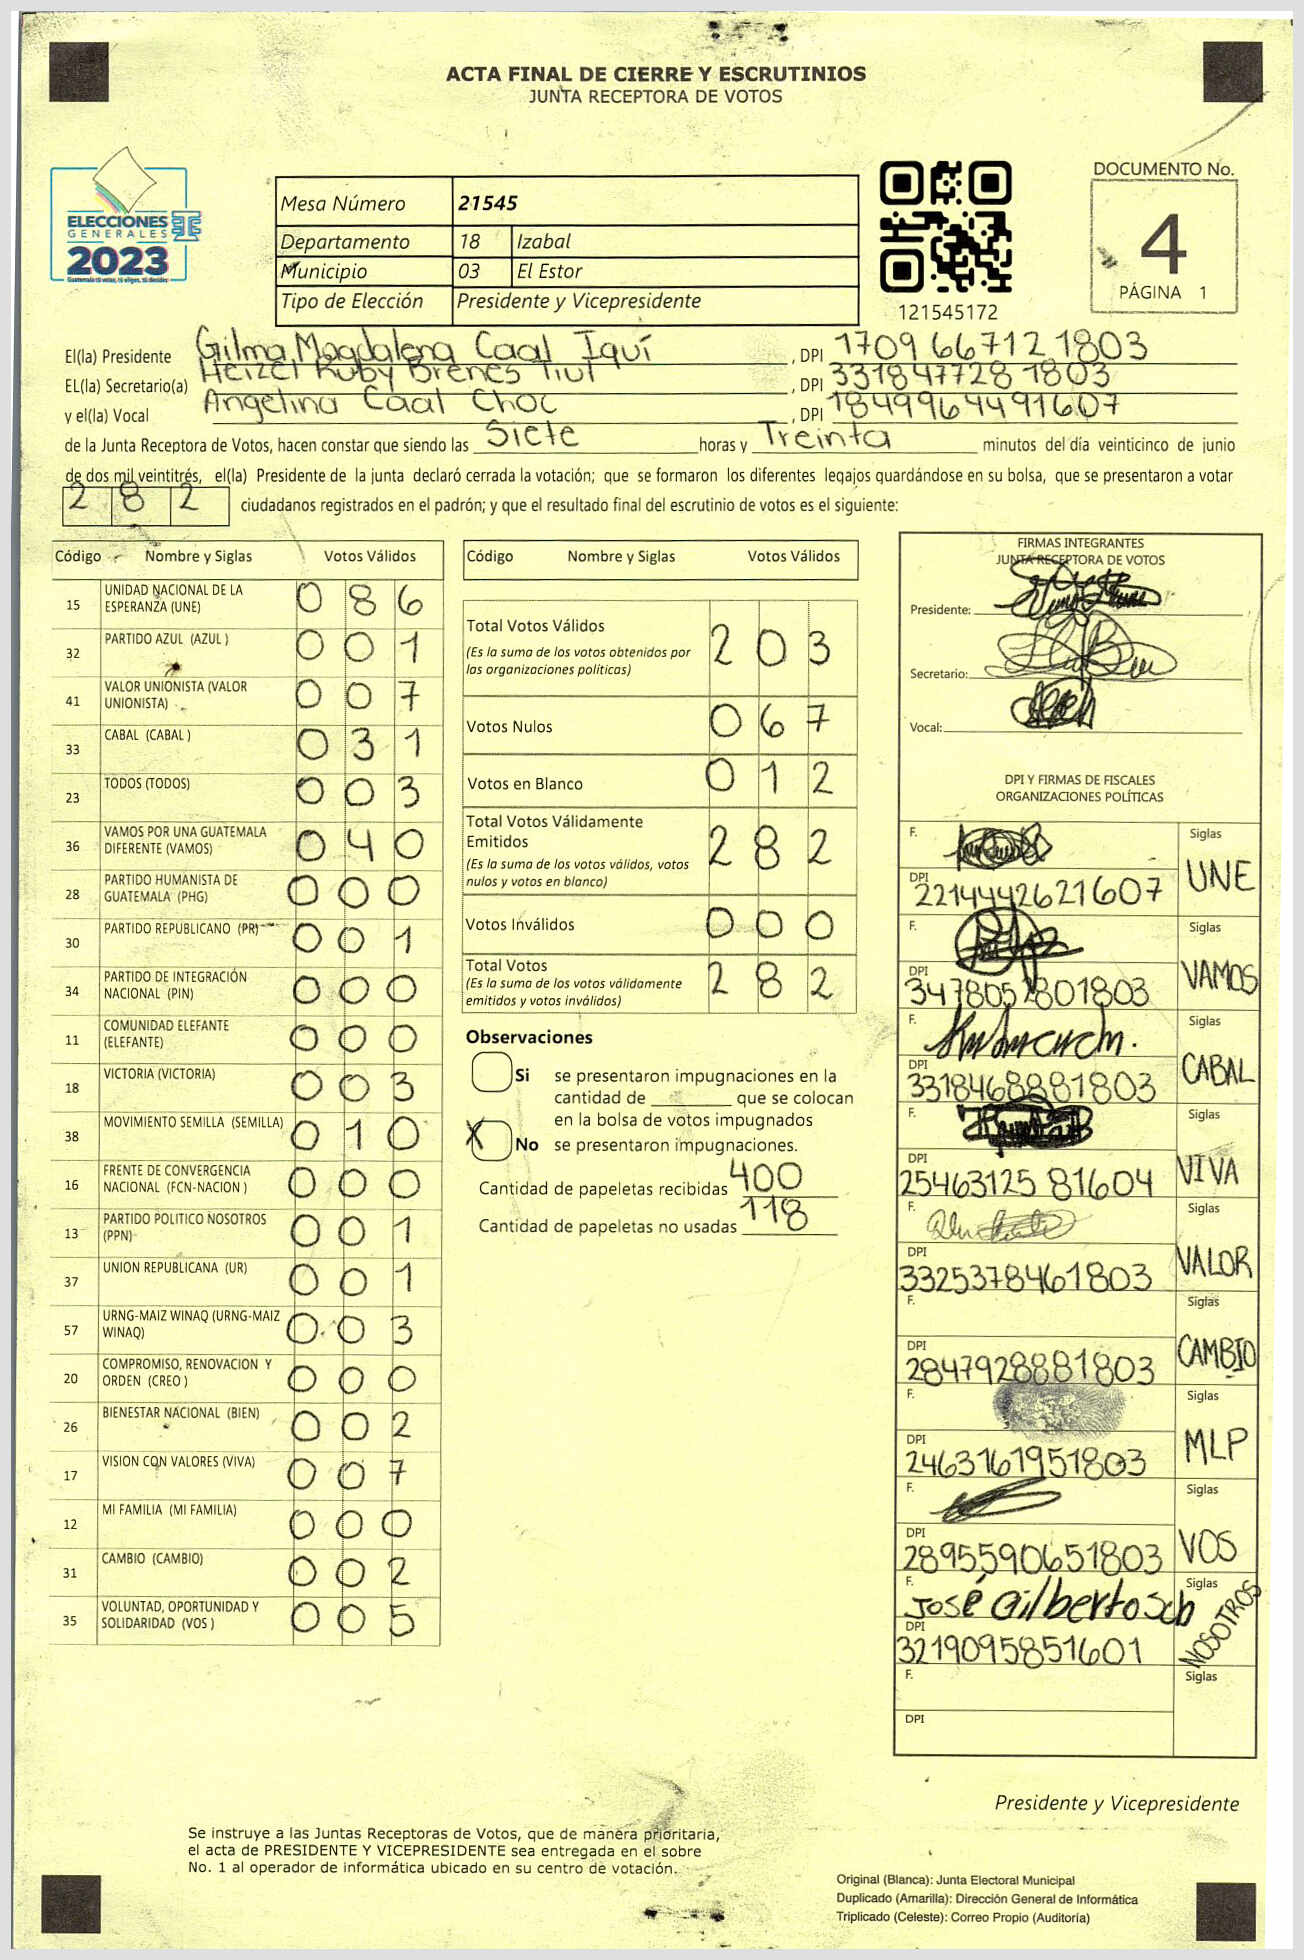 ACTA FINAL DE CIERRE Y ESCRUTINIOS
JUNTA RECEPTORA DE VOTOS
ELECCIONES
GENERALES
2023
Mesa Número 21545
Departamento 18 Izabal
Municipio 03 El Estor
Tipo de Elección Presidente y Vicepresidente
121545172
DOCUMENTO No.
4
PÁGINA 1
El(la) Presidente Gilma Magdalena Caal Iquí , DPI 1709 66712 1803
EL(la) Secretario(a) Heizel Ruby Brenes Tiul , DPI 331847728 1803
y el(la) Vocal Angelina Caal Choc , DPI 1849964491607
de la Junta Receptora de Votos, hacen constar que siendo las Siete horas y Treinta minutos del día veinticinco de junio
de dos mil veintitrés, el(la) Presidente de la junta declaró cerrada la votación; que se formaron los diferentes legajos quardándose en su bolsa, que se presentaron a votar
2 8 2 ciudadanos registrados en el padrón; y que el resultado final del escrutinio de votos es el siguiente:
Código Nombre y Siglas Votos Válidos
15 UNIDAD NACIONAL DE LA ESPERANZA (UNE) 0 8 6
32 PARTIDO AZUL (AZUL ) 0 0 1
41 VALOR UNIONISTA (VALOR UNIONISTA) 0 0 7
33 CABAL (CABAL ) 0 3 1
23 TODOS (TODOS) 0 0 3
36 VAMOS POR UNA GUATEMALA DIFERENTE (VAMOS) 0 4 0
28 PARTIDO HUMANISTA DE GUATEMALA (PHG) 0 0 0
30 PARTIDO REPUBLICANO (PR) 0 0 1
34 PARTIDO DE INTEGRACIÓN NACIONAL (PIN) 0 0 0
11 COMUNIDAD ELEFANTE (ELEFANTE) 0 0 0
18 VICTORIA (VICTORIA) 0 0 3
38 MOVIMIENTO SEMILLA (SEMILLA) 0 1 0
16 FRENTE DE CONVERGENCIA NACIONAL (FCN-NACION ) 0 0 0
13 PARTIDO POLITICO NOSOTROS (PPN) 0 0 1
37 UNION REPUBLICANA (UR) 0 0 1
57 URNG-MAIZ WINAQ (URNG-MAIZ WINAQ) 0 0 3
20 COMPROMISO, RENOVACION Y ORDEN (CREO ) 0 0 0
26 BIENESTAR NACIONAL (BIEN) 0 0 2
17 VISION CON VALORES (VIVA) 0 0 7
12 MI FAMILIA (MI FAMILIA) 0 0 0
31 CAMBIO (CAMBIO) 0 0 2
35 VOLUNTAD, OPORTUNIDAD Y SOLIDARIDAD (VOS ) 0 0 5
Código Nombre y Siglas Votos Válidos
Total Votos Válidos 2 0 3
(Es la suma de los votos obtenidos por las organizaciones políticas)
Votos Nulos 0 6 7
Votos en Blanco 0 1 2
Total Votos Válidamente Emitidos 2 8 2
(Es la suma de los votos válidos, votos nulos y votos en blanco)
Votos Inválidos 0 0 0
Total Votos 2 8 2
(Es la suma de los votos válidamente emitidos y votos inválidos)
Observaciones
Si se presentaron impugnaciones en la
cantidad de ________ que se colocan
en la bolsa de votos impugnados
X No se presentaron impugnaciones.
Cantidad de papeletas recibidas 400
Cantidad de papeletas no usadas 118
FIRMAS INTEGRANTES
JUNTA RECEPTORA DE VOTOS
Presidente:
Secretario:
Vocal:
DPI Y FIRMAS DE FISCALES
ORGANIZACIONES POLÍTICAS
F. Siglas UNE
DPI 2214442621607
F. Siglas VAMOS
DPI 3478052801803
F. Siglas CABAL
DPI 3318468881803
F. Siglas VIVA
DPI 25463125 81604
F. Siglas VALOR
DPI 3325378461803
F. Siglas CAMBIO
DPI 2847928881803
F. Siglas MLP
DPI 2463161951803
F. Siglas VOS
DPI 2895590651803
F. José Gilberto Siglas NOSOTROS
DPI 3219095851601
F. Siglas
DPI
Presidente y Vicepresidente
Se instruye a las Juntas Receptoras de Votos, que de manera prioritaria,
el acta de PRESIDENTE Y VICEPRESIDENTE sea entregada en el sobre
No. 1 al operador de informática ubicado en su centro de votación.
Original (Blanca): Junta Electoral Municipal
Duplicado (Amarilla): Dirección General de Informática
Triplicado (Celeste): Correo Propio (Auditoría)